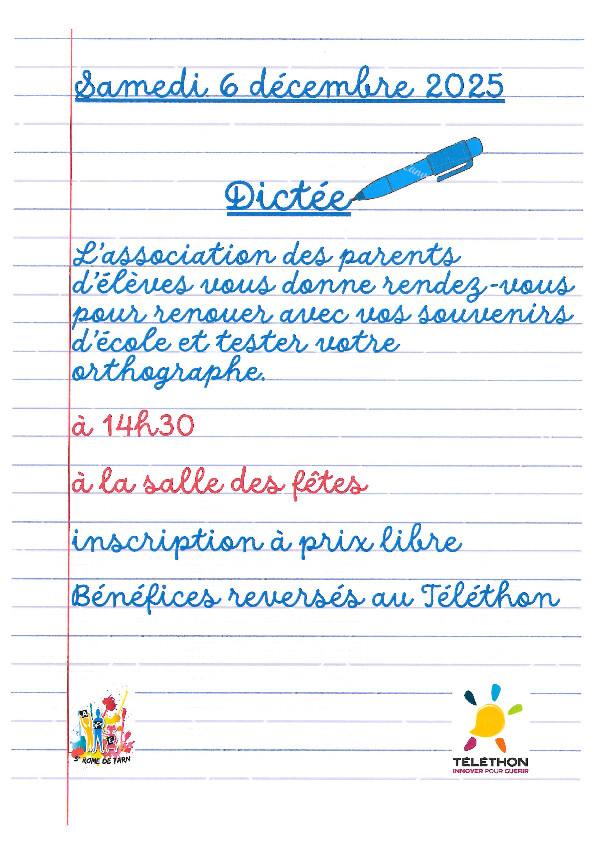 Samedi 6 décembre 2025
Dictée
L'association des parents
d'élèves vous donne rendez-vous
pour renouer avec vos souvenirs
d'école et tester votre
orthographe.
à 14h30
à la salle des fêtes
inscription à prix libre
Bénéfices reversés au Téléthon
St ROME DE TARN
TÉLÉTHON
INNOVER POUR GUÉRIR